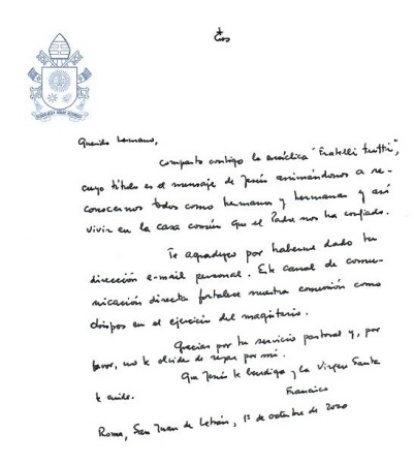 Querido hermano,
comparto contigo la encíclica "Fratelli tutti",
cuyo título es el mensaje de Jesús animándonos a re-
conocernos todos como hermanos y hermanas y así
vivir en la casa común que el Padre nos ha confiado.
Te agradezco por haberme dado tu
dirección e-mail personal. Este canal de comu-
nicación directa fortalece nuestra comunión como
obispos en el ejercicio del magisterio.
Gracias por tu servicio pastoral y, por
favor, no te olvides de rezar por mí.
Que Jesús te bendiga y la Virgen Santa
te cuide.
Francisco
Roma, San Juan de Letrán, de octubre de 2020